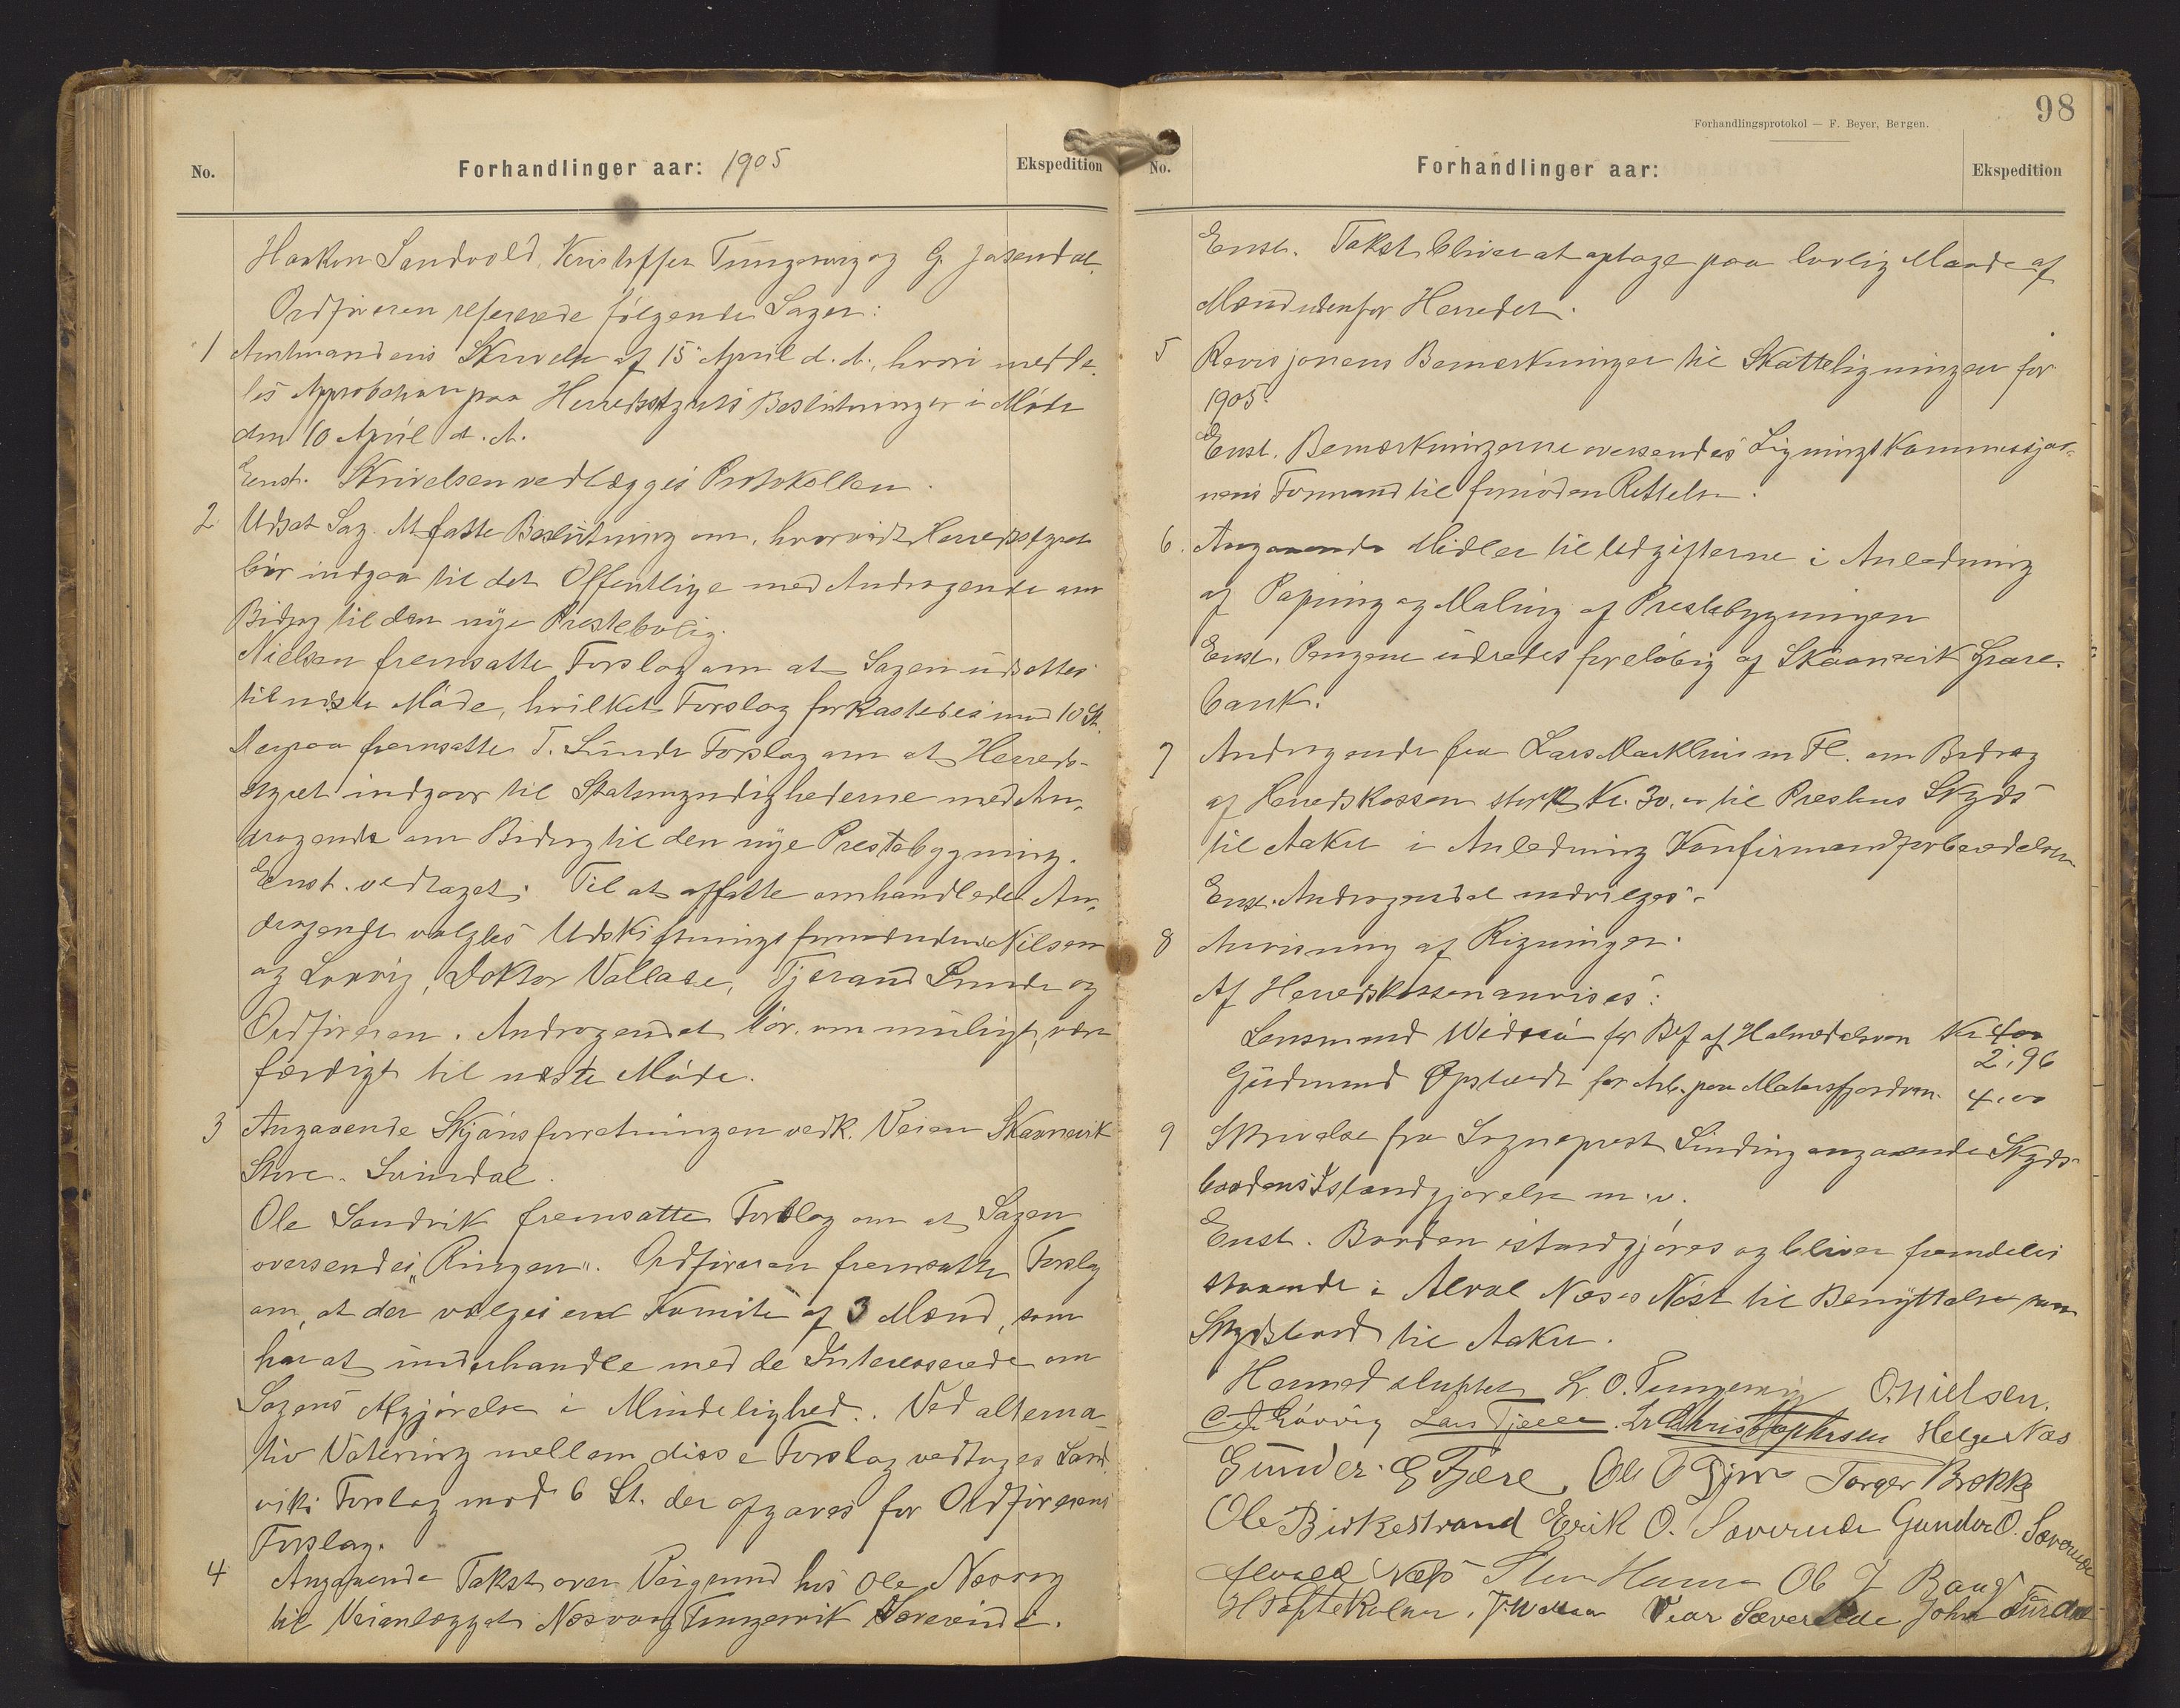 No.
Forhandlinger aar: 1905
Ekspedition
Haakon Sandvold, Kristoffer Tungesvig og G. Jøsendal.
Ordføreren refererede følgende Sager:
1 Amtmandens Skrivelse af 15 April d. A., hvori medde-
les Approbation paa Herredsstyrets Beslutninger i Møde
den 10 April d. A.
Enst. Skrivelsen vedlægges Protokollen.
2 Udsat Sag. At fatte Beslutning om, hvorvidt Herredsstyret
bør indgaa til det Offentlige med Andragende om
Bidrag til den nye Prestebolig.
Nielsen fremsatte Forslag om at Sagen udsættes
til næste Møde, hvilket Forslag forkastedes mod 10 St.
Derpaa fremsatte T. Sunde Forslag om at Herreds-
styret indgaar til Statsmyndighederne med An-
dragende om Bidrag til den nye Prestebygning.
Enst. vedtaget. Til at affatte omhandlede An-
dragende valgtes Udskiftningsformændene Nilsen
og Løvvig, Doktor Vallase, Tjerand Sunde og
Ordføreren. Andragendet bør om muligt, være
færdigt til næste Møde.
3 Angaaende Skjønsforretningen vedk. Veien Skaanevik
Store-Svindal.
Ole Sandvik fremsatte Forslag om at Sagen
oversendes "Ringen". Ordføreren fremsatte Forslag
om, at der vælges en Komite af 3 Mænd, som
har at underhandle med de Interesserede om
Sagens Afgjørelse i Mindelighed. Ved alterna-
tiv Votering mellem disse Forslag vedtoges Sand-
viks Forslag mod 6 St. der afgaves for Ordførerens
Forslag.
4 Angaaende Takst over Veigrund hos Ole Næsvog
til Veianlægget Næsvog Tungesvik Sævereide.
98
Forhandlingsprotokol — F. Beyer, Bergen.
No.
Forhandlinger aar:
Ekspedition
Enst. Takst bliver at optage paa lovlig Maade af
Mænd udenfor Herredet.
5 Revisjonens Bemærkninger til Skatteligningen for
1905.
Enst. Bemærkningerne oversendes Ligningskommissjo-
nens Formand til fornøden Rettelse.
6. Angaaende Midler til Udgifterne i Anledning
af Papning og Maling af Prestebygningen
Enst. Pengene udredes foreløbig af Skaanevik Spare-
bank.
7 Andragende fra Lars Markhus m Fl. om Bidrag
af Herredskassen stort Kr. 30.00 til Prestens Skyds
til Aakre i Anledning Konfirmandforberedelsen
Enst. Andragendet indvilges.
8 Anvisning af Rigninger.
Af Herredskassen anvises:
Lensmand for Bef af Kr 4.00
2,96
Gudmund Opstvedt for Arb. paa Matersfjordven. 4.00
9 Skrivelse fra Sogneprest Linding angaaende Skyds-
baadens Istandgjørelse m. v.
Enst. Baaden istandgjøres og bliver fremdeles
staaende i Alvæl Næs's Nøst til Benyttelse som
Skydsbaad til Aakre.
Hermed sluttet L. O. Tungesvig O. Nielsen.
C. J. Løvvig Lars Tjelle. L. Christophersen Helge Næs
Gunder. G Fjære, Ole O Torger Brekke
Ole Birkestrand Erik O. Sævereide Gunder O. Sævereide
Alvæld Næss Sten Ole J Baug
H Toftekalven. J. Wallase Viar Sævereide John Surdal